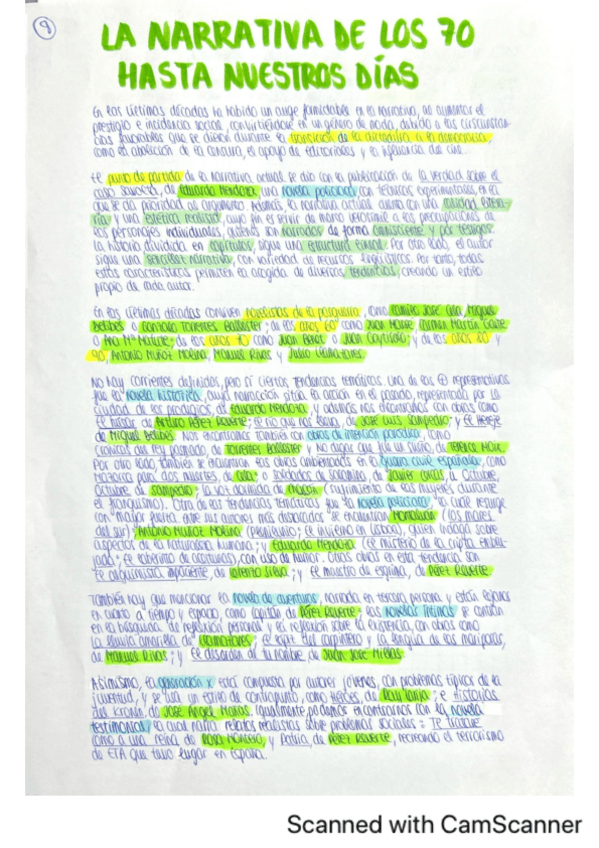 9
LA NARRATIVA DE LOS 70
HASTA NUESTROS DÍAS
En las últimas décadas ha habido un auge formidable en la narrativa, al aumentar el
prestigio e incidencia social, convirtiéndose en un género de moda, debido a las circunstan-
cias favorables que se dieron durante la transición de la dictadura a la democracia,
como la abolición de la censura, el apoyo de editoriales y la influencia del cine.
El punto de partida de la narrativa actual se dio con la publicación de La verdad sobre el
caso Savolta, de Eduardo Mendoza, una novela policial con técnicas experimentales, en la
que se da prioridad al argumento. Además, la narrativa actual cuenta con una calidad litera-
ria y una estética realista, cuyo fin es servir de marco verosímil a las preocupaciones de
los personajes individuales, quienes son narrados de forma omnisciente y por testigos.
La historia dividida en capítulos, sigue una estructura lineal. Por otro lado, el autor
sigue una sencillez narrativa, con variedad de recursos lingüísticos. Por tanto, todas
estas características permiten la acogida de diversas tendencias, creando un estilo
propio de cada autor.
En las últimas décadas conviven novelistas de la posguerra, como Camilo José Cela, Miguel
Delibes o Gonzalo Torrentes Ballester; de los años 60 como Juan Marsé, Carmen Martín Gaite
o Ana Mª Matute; de los años 70 como Juan Benet o Juan Goytisolo; y de los 80 y
90, Antonio Muñoz Molina, Manuel Rivas y Julio Llamazares.
No hay corrientes definidas, pero sí ciertas tendencias temáticas. Una de las + representativas
fue la novela histórica, cuya narración sitúa la acción en el pasado, representada por La
ciudad de los prodigios, de Eduardo Mendoza, y además nos encontramos con obras como
El húsar, de Arturo Pérez Reverte; El río que nos lleva, de José Luis Sampedro; y El hereje
de Miguel Delibes. Nos encontramos también con obras de intención paródica, como
Crónicas del rey pasmado, de Torrentes Ballester y No digas que fue un sueño, de Terenci Moix.
Por otro lado, también se encuentran las obras ambientadas en la guerra civil española, como
Mazurca para dos muertos, de Cela, o Soldados de Salamina, de Javier Cercas, o Octubre,
Octubre, de Sampedro; La voz dormida de Chacón (sufrimiento de las mujeres durante
el franquismo). Otra de las tendencias temáticas fue la novela policiaca, la cual resurge
con mayor fuerza. Entre sus autores más destacados se encuentran Montalbán (Los mares
del sur); Antonio Muñoz Molina (Plenilunio; El invierno en Lisboa), quien indaga sobre
aspectos de la naturaleza humana; y Eduardo Mendoza (El misterio de la cripta embru-
jada; El laberinto de aceitunas), con uso de humor. Otras obras en esta tendencia son
El alquimista impaciente, de Lorenzo Silva; y El maestro de esgrima, de Pérez Reverte.
También hay que mencionar la novela de aventuras, narrada en tercera persona y están lejanas
en cuanto a tiempo y espacio, como Capitán de Pérez Reverte; las novelas íntimas se centran
en la búsqueda de reflexión personal y la reflexión sobre la existencia, con obras como
La lluvia amarilla de Llamazares; El lápiz del carpintero y La lengua de las mariposas,
de Manuel Rivas; y El desorden de tu nombre, de Juan José Millás.
Asimismo, la generación X está compuesta por autores jóvenes, con problemas típicos de la
juventud, y se usa un estilo de contrapunto, como Héroes, de Ray Loriga; e Historias
del Kronen, de José Ángel Mañas. Igualmente podemos encontrarnos con la novela
testimonial, la cual narra relatos realistas sobre problemas sociales: Te trataré
como a una reina, de Rosa Montero, y Patria, de Pérez Reverte, recreando el terrorismo
de ETA que tuvo lugar en España.
Scanned with CamScanner